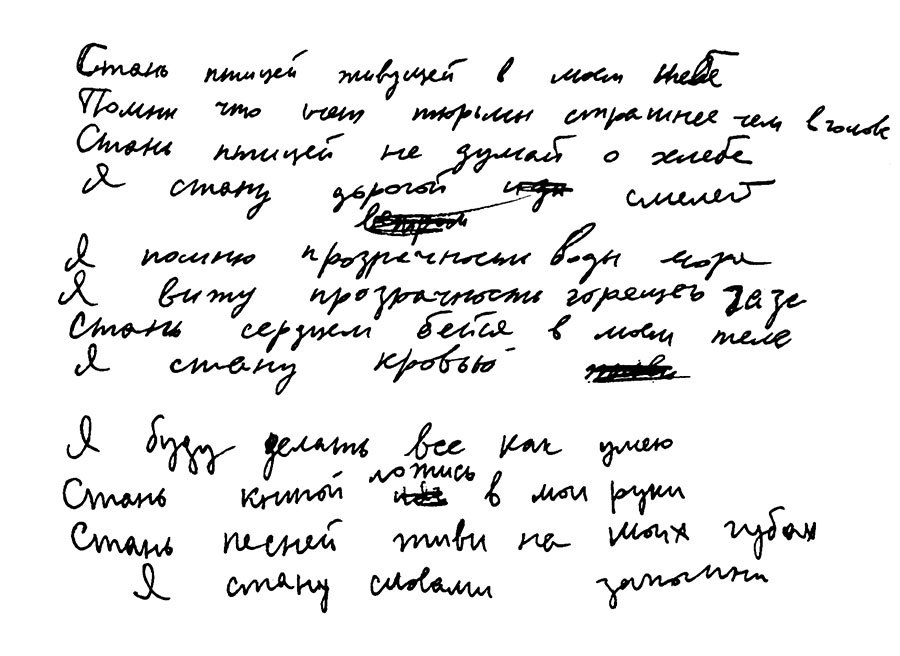 Стань птицей живущей в моем небе
Помни что нет тюрьмы страшнее чем в голове
Стань птицей не думай о хлебе
Я стану дорогой смелей
ветром
Я помню прозрачность воды моря
Я вижу прозрачность горящего газа
Стань сердцем бейся в моем теле
Я стану кровью
Я буду делать все как умею
Стань книгой ложись в мои руки
Стань песней живи на моих губах
Я стану словами запомни